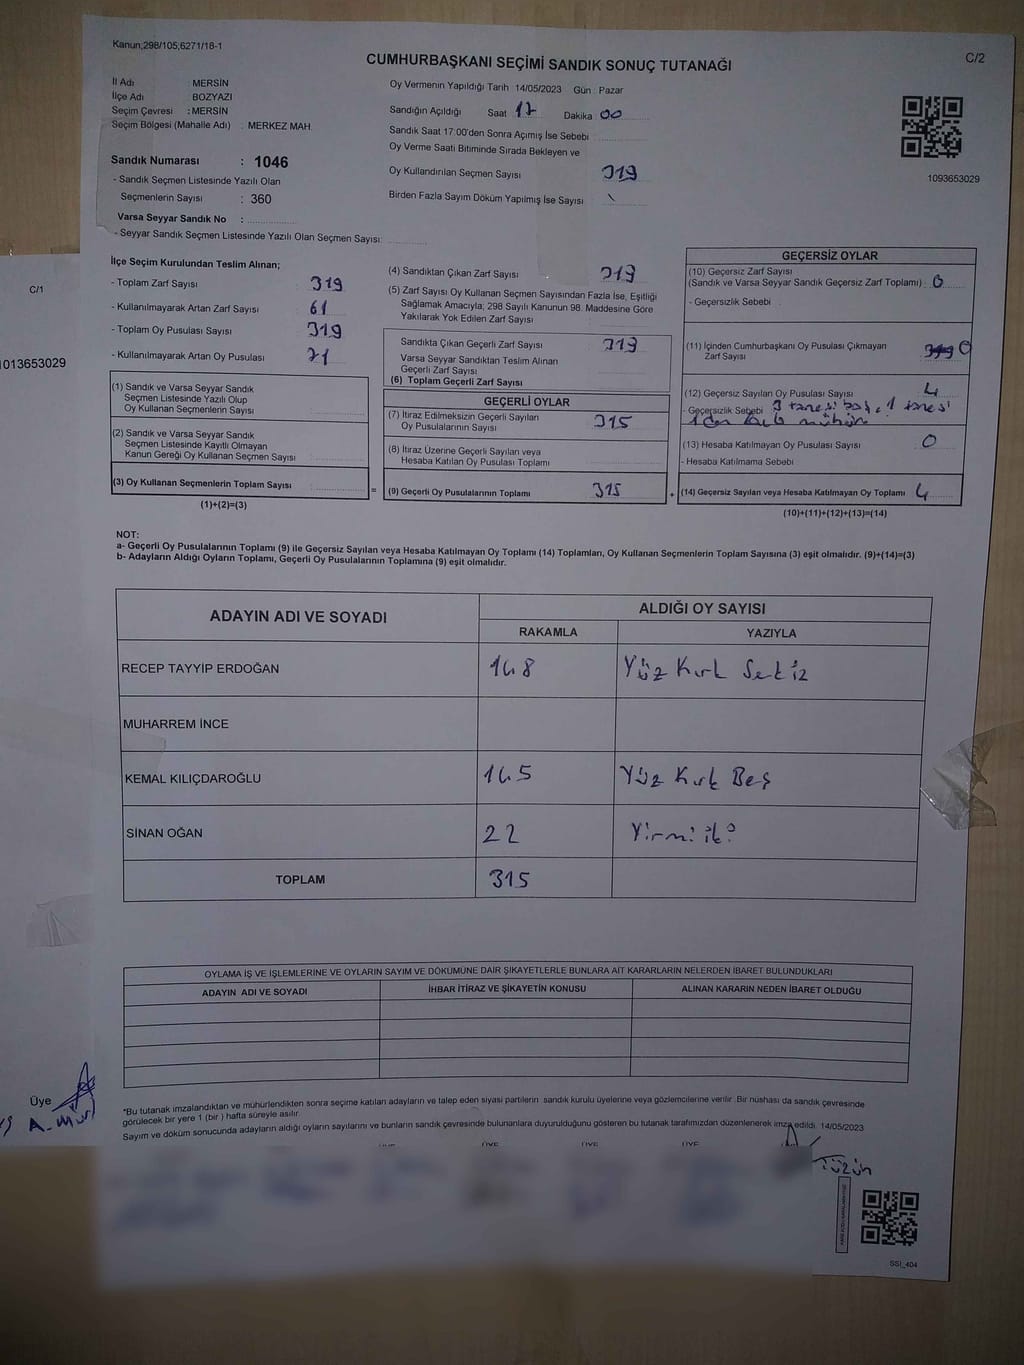 Kanun;298/105;6271/18-1
C/2
CUMHURBAŞKANI SEÇİMİ SANDIK SONUÇ TUTANAĞI
İl Adı : MERSİN
İlçe Adı : BOZYAZI
Seçim Çevresi : MERSİN
Seçim Bölgesi (Mahalle Adı) : MERKEZ MAH.
Sandık Numarası : 1046
- Sandık Seçmen Listesinde Yazılı Olan
Seçmenlerin Sayısı : 360
Varsa Seyyar Sandık No :
- Seyyar Sandık Seçmen Listesinde Yazılı Olan Seçmen Sayısı:
Oy Vermenin Yapıldığı Tarih 14/05/2023 Gün : Pazar
Sandığın Açıldığı Saat 17 Dakika 00
Sandık Saat 17:00'den Sonra Açımış İse Sebebi
Oy Verme Saati Bitiminde Sırada Bekleyen ve
Oy Kullandırılan Seçmen Sayısı 319
Birden Fazla Sayım Döküm Yapılmış İse Sayısı
1093653029
C/1
1013653029
İlçe Seçim Kurulundan Teslim Alınan;
- Toplam Zarf Sayısı : 319
- Kullanılmayarak Artan Zarf Sayısı : 61
- Toplam Oy Pusulası Sayısı : 319
- Kullanılmayarak Artan Oy Pusulası : 21
(1) Sandık ve Varsa Seyyar Sandık
Seçmen Listesinde Yazılı Olup
Oy Kullanan Seçmenlerin Sayısı
(2) Sandık ve Varsa Seyyar Sandık
Seçmen Listesinde Kayıtlı Olmayan
Kanun Gereği Oy Kullanan Seçmen Sayısı
(3) Oy Kullanan Seçmenlerin Toplam Sayısı
(1)+(2)=(3)
(4) Sandıktan Çıkan Zarf Sayısı 319
(5) Zarf Sayısı Oy Kullanan Seçmen Sayısından Fazla İse, Eşitliği
Sağlamak Amacıyla; 298 Sayılı Kanunun 98. Maddesine Göre
Yakılarak Yok Edilen Zarf Sayısı
Sandıkta Çıkan Geçerli Zarf Sayısı 319
Varsa Seyyar Sandıktan Teslim Alınan
Geçerli Zarf Sayısı
(6) Toplam Geçerli Zarf Sayısı
GEÇERLİ OYLAR
(7) İtiraz Edilmeksizin Geçerli Sayılan
Oy Pusulalarının Sayısı 315
(8) İtiraz Üzerine Geçerli Sayılan veya
Hesaba Katılan Oy Pusulası Toplamı
= (9) Geçerli Oy Pusulalarının Toplamı 315
GEÇERSİZ OYLAR
(10) Geçersiz Zarf Sayısı
(Sandık ve Varsa Seyyar Sandık Geçersiz Zarf Toplamı) : 0
- Geçersizlik Sebebi :
(11) İçinden Cumhurbaşkanı Oy Pusulası Çıkmayan
Zarf Sayısı 0
(12) Geçersiz Sayılan Oy Pusulası Sayısı 4
- Geçersizlik Sebebi 3 tanesi boş, 1 tanesi
mühür
(13) Hesaba Katılmayan Oy Pusulası Sayısı 0
- Hesaba Katılmama Sebebi
+ (14) Geçersiz Sayılan veya Hesaba Katılmayan Oy Toplamı 4
(10)+(11)+(12)+(13)=(14)
NOT:
a- Geçerli Oy Pusulalarının Toplamı (9) ile Geçersiz Sayılan veya Hesaba Katılmayan Oy Toplamı (14) Toplamları, Oy Kullanan Seçmenlerin Toplam Sayısına (3) eşit olmalıdır. (9)+(14)=(3)
b- Adayların Aldığı Oyların Toplamı, Geçerli Oy Pusulalarının Toplamına (9) eşit olmalıdır.
ADAYIN ADI VE SOYADI ALDIĞI OY SAYISI
RAKAMLA YAZIYLA
RECEP TAYYİP ERDOĞAN 148 Yüz Kırk Sekiz
MUHARREM İNCE
KEMAL KILIÇDAROĞLU 145 Yüz Kırk Beş
SİNAN OĞAN 22 Yirmi iki
TOPLAM 315
OYLAMA İŞ VE İŞLEMLERİNE VE OYLARIN SAYIM VE DÖKÜMÜNE DAİR ŞİKAYETLERLE BUNLARA AİT KARARLARIN NELERDEN İBARET BULUNDUKLARI
ADAYIN ADI VE SOYADI İHBAR İTİRAZ VE ŞİKAYETİN KONUSU ALINAN KARARIN NEDEN İBARET OLDUĞU
*Bu tutanak imzalandıktan ve mühürlendikten sonra seçime katılan adayların ve talep eden siyasi partilerin sandık kurulu üyelerine veya gözlemcilerine verilir. Bir nüshası da sandık çevresinde
görülecek bir yere 1 (bir) hafta süreyle asılır.
Sayım ve döküm sonucunda adayların aldığı oyların sayılarını ve bunların sandık çevresinde bulunanlara duyurulduğunu gösteren bu tutanak tarafımızdan düzenlenerek imza edildi. 14/05/2023
Üye
ÜYE ÜYE ÜYE
SSI_404